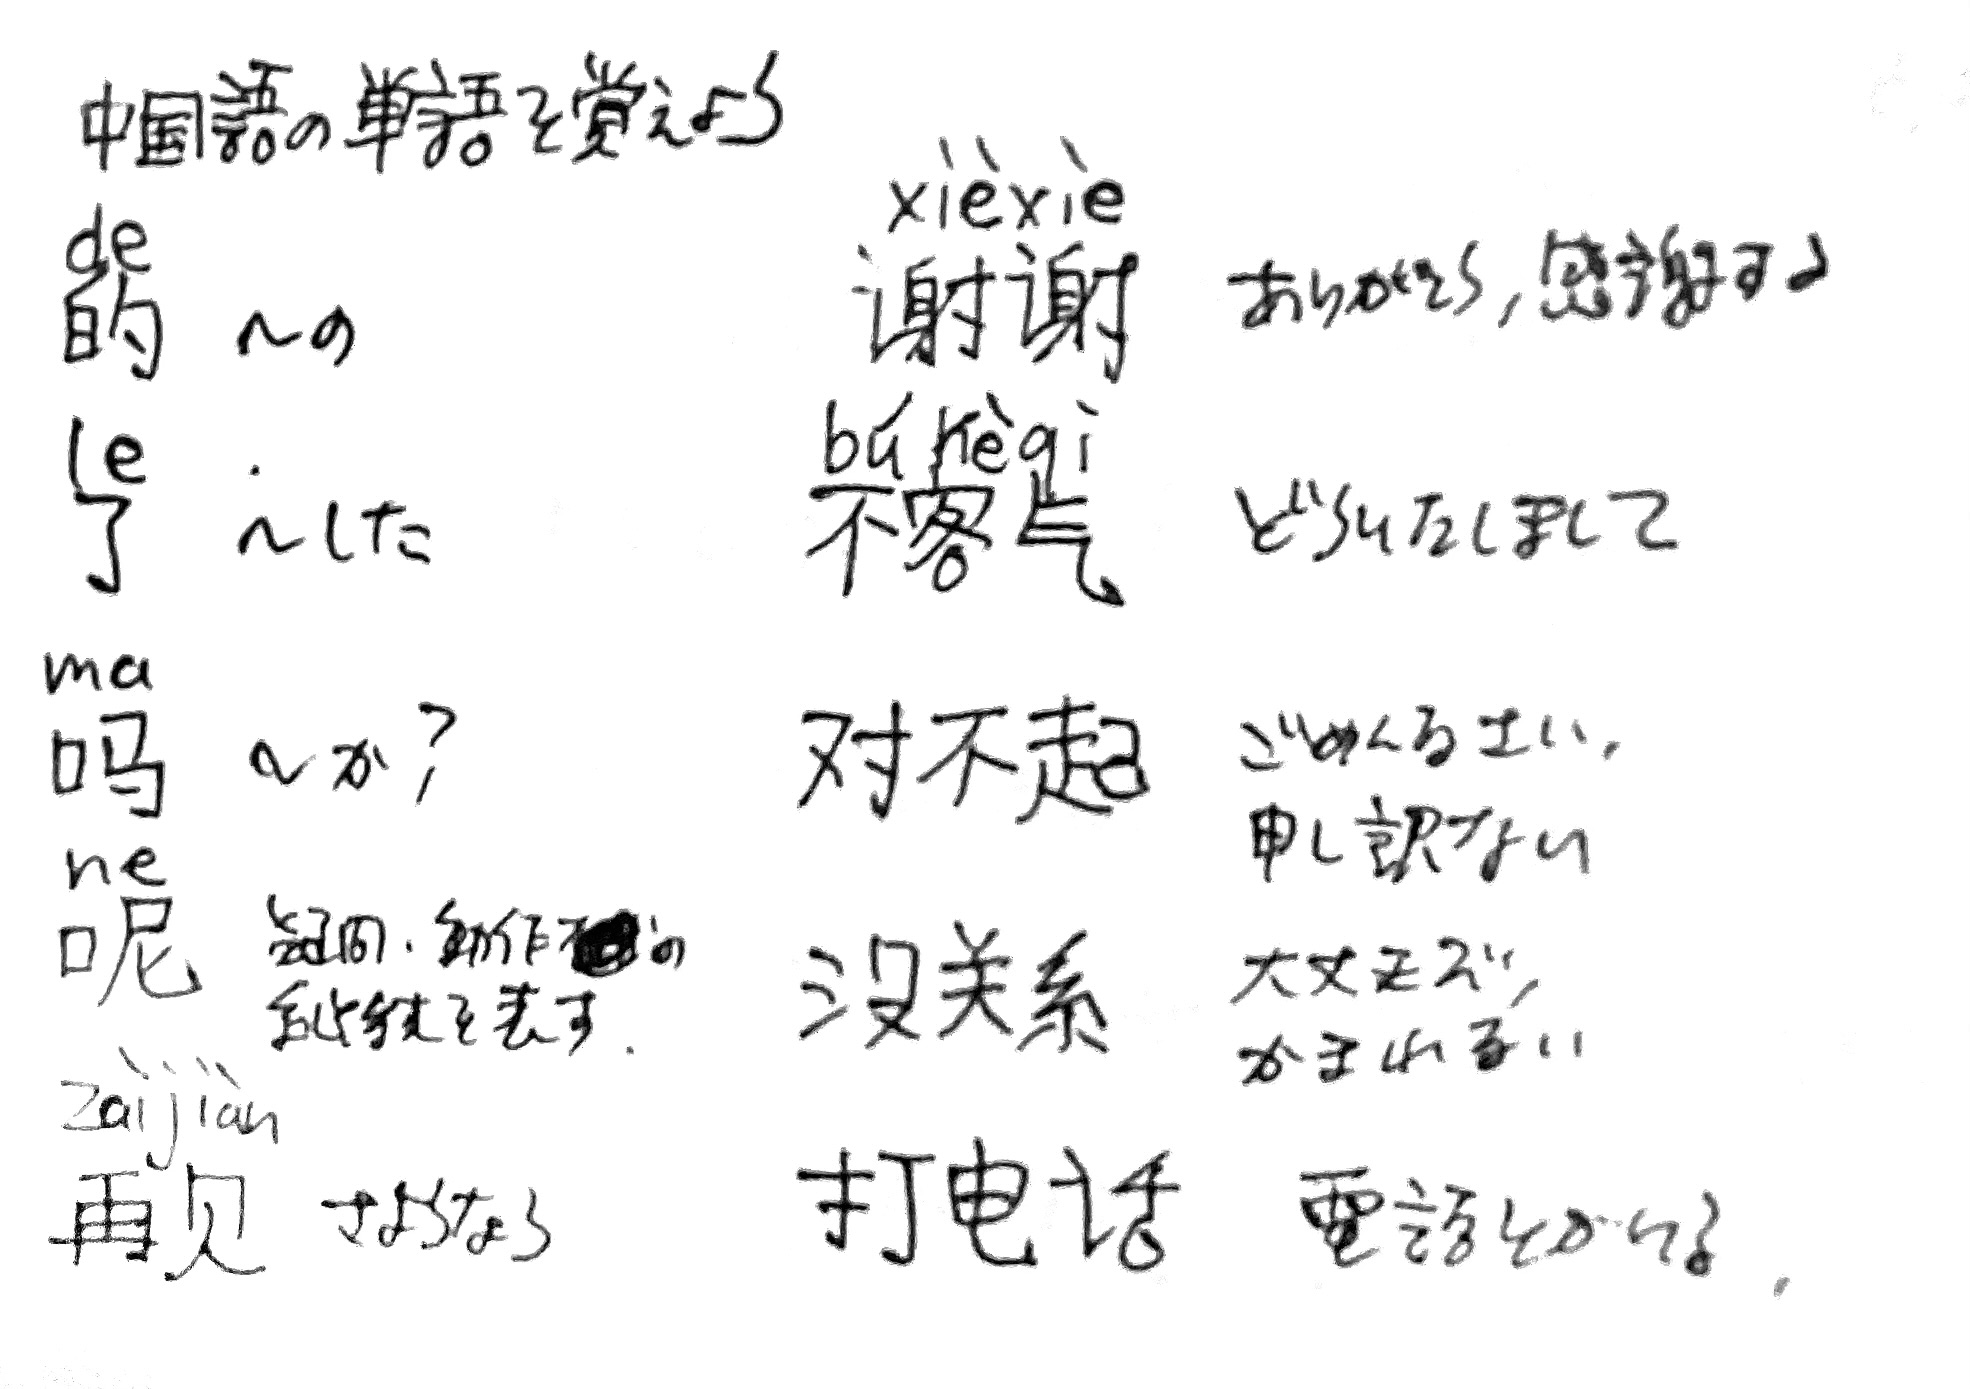 中国語の単語を覚えよう
de
的 ~の
le
了 ~した
ma
吗 ~か?
ne
呢 疑問・動作の
継続を表す.
zàijiàn
再见 さようなら
xièxiè
谢谢 ありがとう,感謝する
bú kèqi
不客气 どういたしまして
对不起 ごめんなさい,
申し訳ない
没关系 大丈夫だ,
かまわない
打电话 電話をかける.